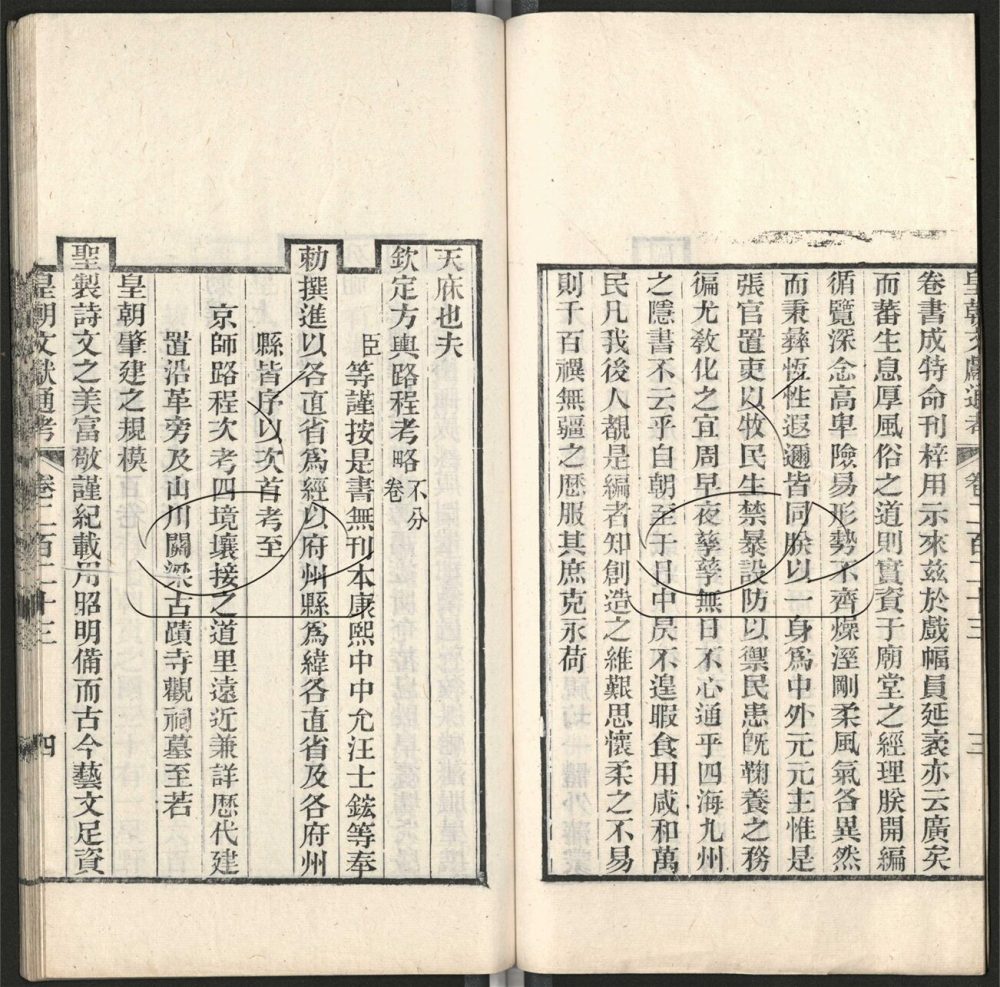 皇朝文獻通考 卷二百二十三 三
卷書成特命刊梓用示來茲於戲幅員延袤亦云廣矣
而蕃生息厚風俗之道則實資于廟堂之經理朕開編
循覽深念高卑險易形勢不齊燥溼剛柔風氣各異然
而秉彝恆性遐邇皆同朕以一身為中外元元主惟是
張官置吏以牧民生禁暴設防以禦民患旣鞠養之務
徧尤敎化之宜周早夜孳孳無日不心通乎四海九州
之隱書不云乎自朝至于日中昃不遑暇食用咸和萬
民凡我後人覩是編者知創造之維艱思懷柔之不易
則千百禩無疆之歷服其庶克永荷
天庥也夫
欽定方輿路程考略不分卷
臣等謹按是書無刊本康熙中中允汪士鋐等奉
勅撰進以各直省為經以府州縣為緯各直省及各府州
縣皆序以次首考至
京師路程次考四境壤接之道里遠近兼詳歷代建
置沿革旁及山川關梁古蹟寺觀祠墓至若
皇朝肇建之規模
聖製詩文之美富敬謹紀載用昭明備而古今藝文足資
皇朝文獻通考 卷二百二十三 四